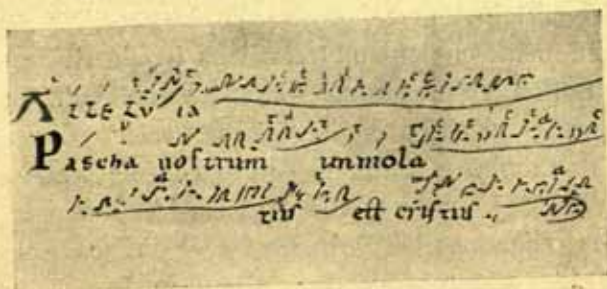 ALLE LV IA
Pascha nostrum immola
tus est cristus.